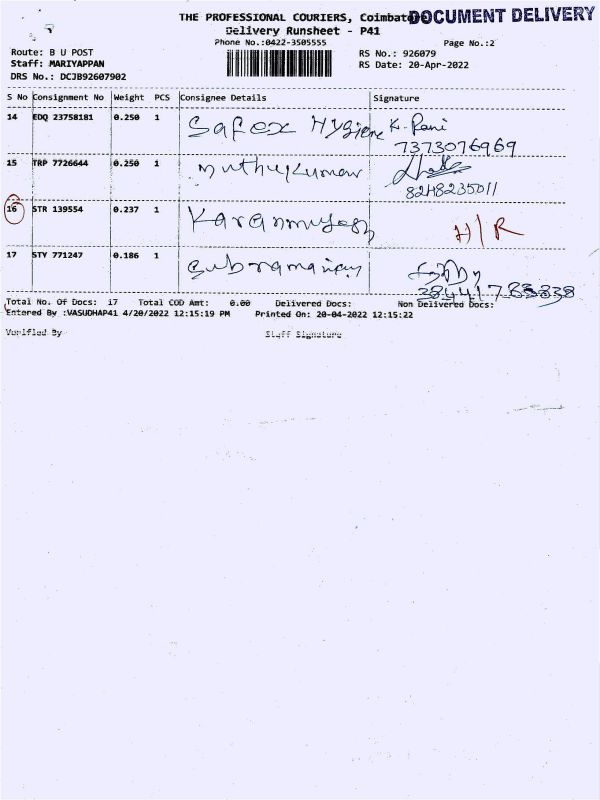 THE PROFESSIONAL COURIERS, Coimbatore
DOCUMENT DELIVERY
Delivery Runsheet - P41
Phone No.:0422-3505555
Page No.:2
Route: B U POST
RS No.: 926079
Staff: MARIYAPPAN
RS Date: 20-Apr-2022
DRS No.: DCJB92607902
S No Consignment No Weight PCS Consignee Details Signature
14 EDQ 23758181 0.250 1 Safex Hygiene K. Rani
7373076969
15 TRP 7726644 0.250 1 Muthukumar
8248235011
16 STR 139554 0.237 1 H/R
17 STY 771247 0.186 1 Subramaniam
Total No. Of Docs: 17 Total COD Amt: 0.00 Delivered Docs: Non Delivered Docs:
Entered By :VASUDHAP41 4/20/2022 12:15:19 PM Printed On: 20-04-2022 12:15:22
Verified By Staff Signature